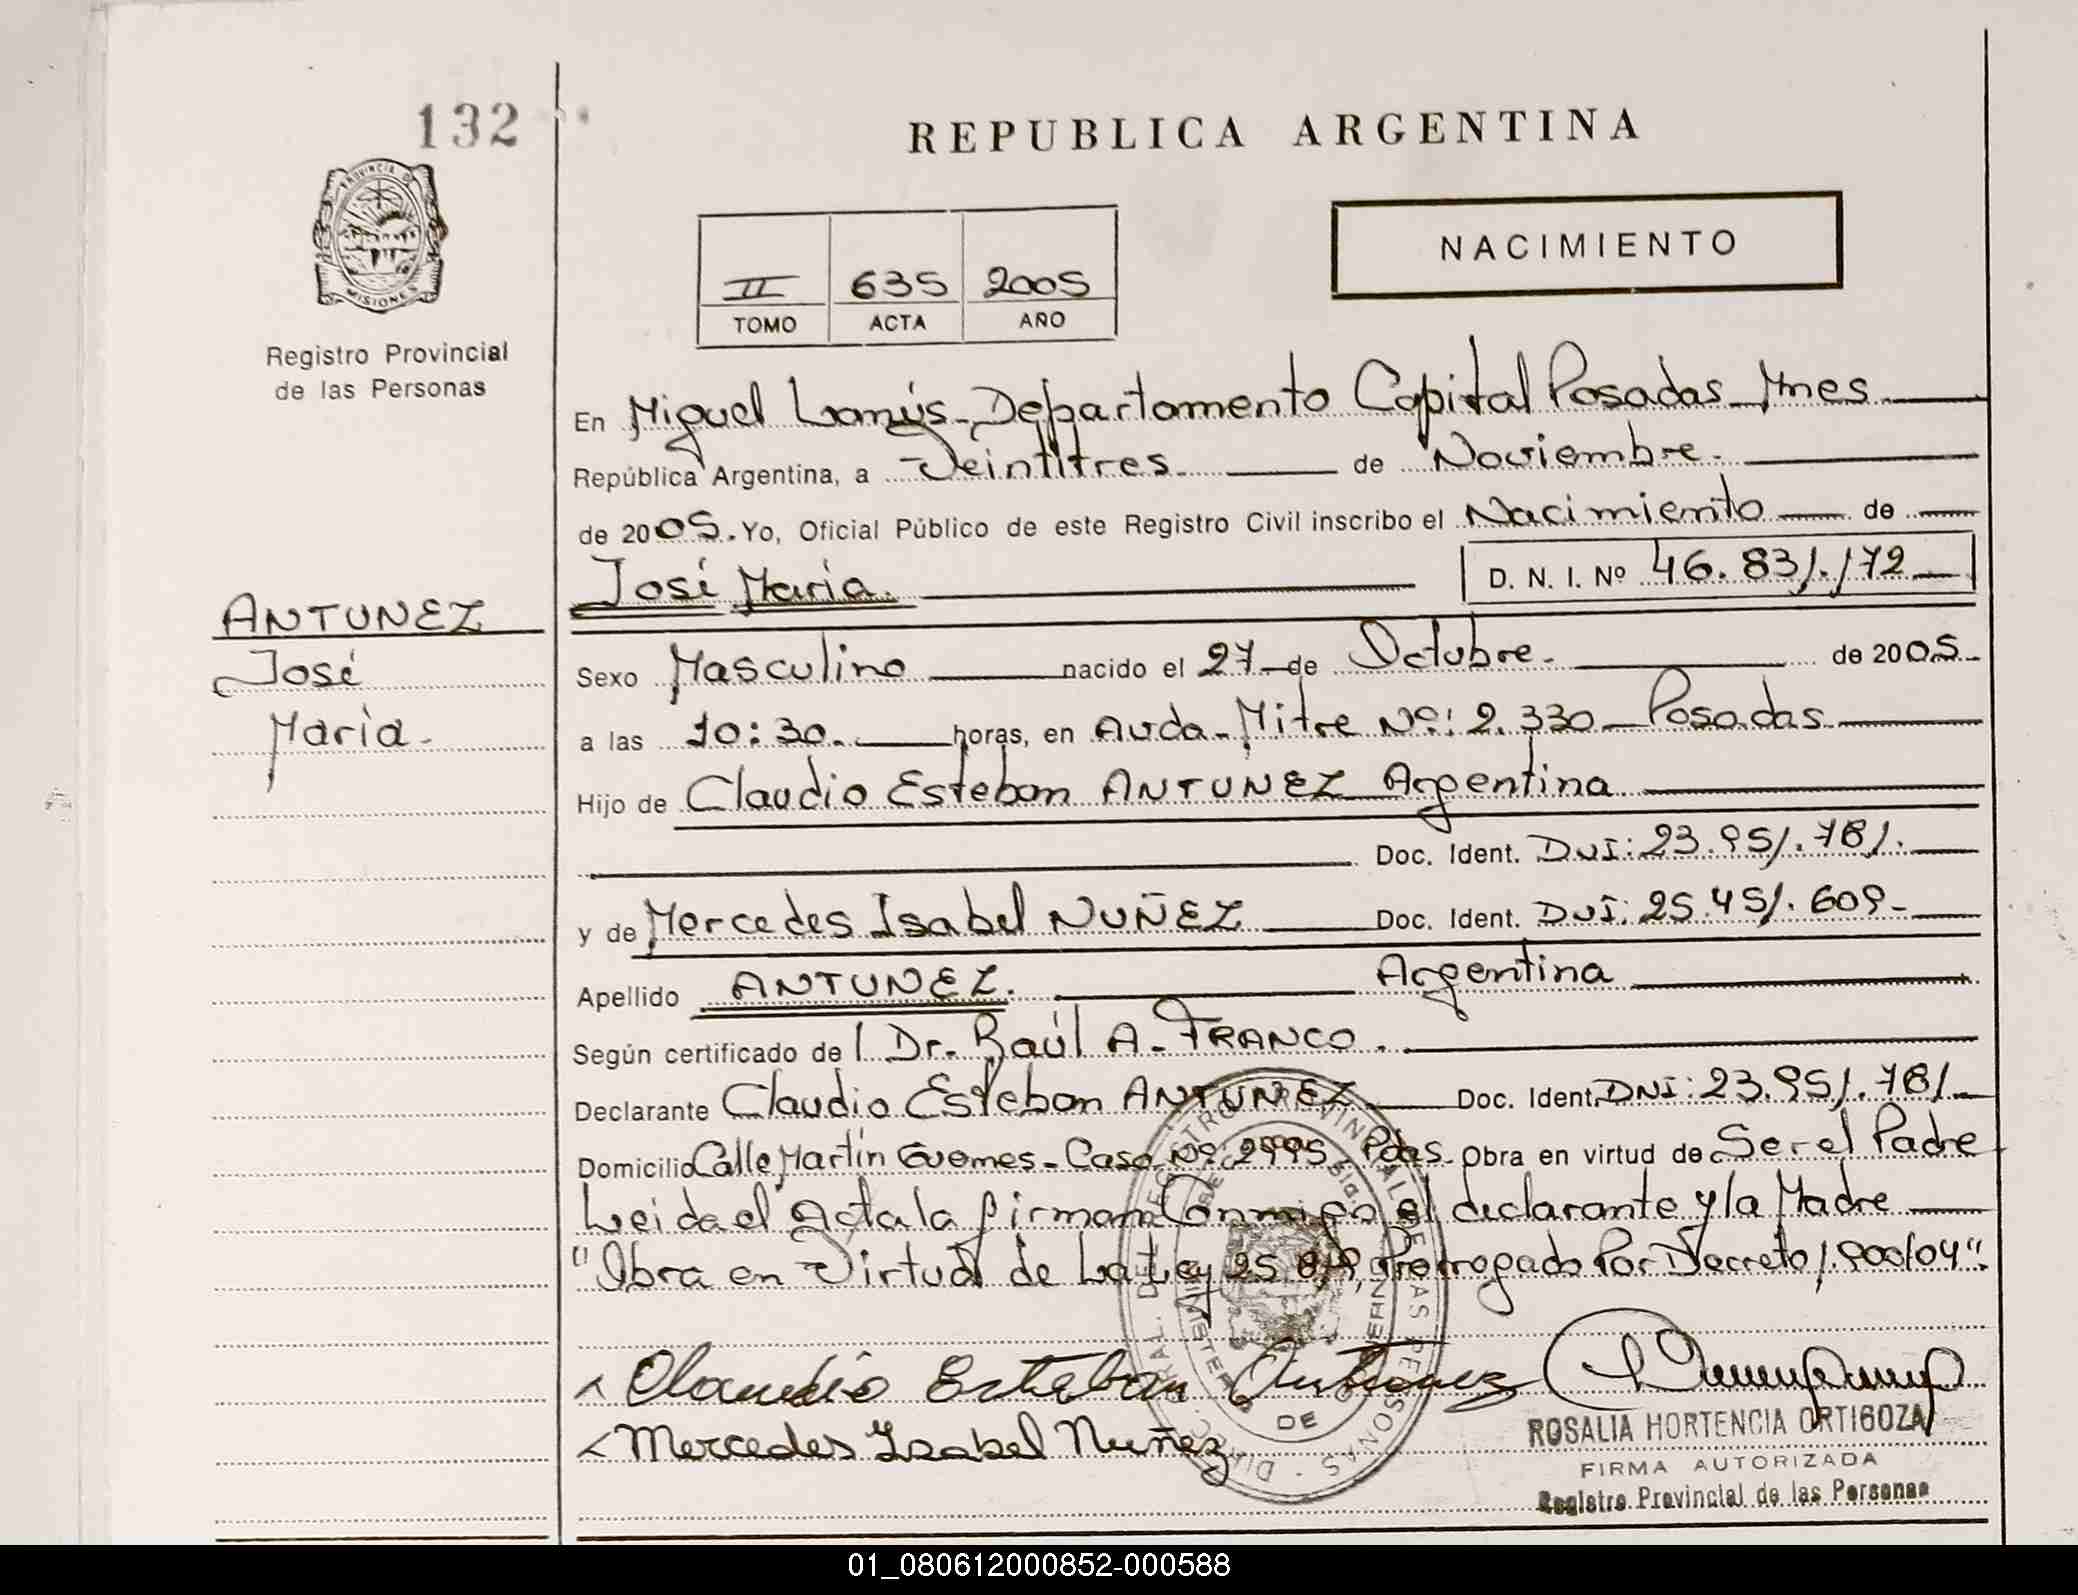 132
REPUBLICA ARGENTINA
PROVINCIA DE MISIONES
Registro Provincial
de las Personas
NACIMIENTO
II 635 2005
TOMO ACTA AÑO
En Miguel Lanús - Departamento Capital Posadas - Mnes
República Argentina, a Veintitres de Noviembre.
de 2005. Yo, Oficial Público de este Registro Civil inscribo el Nacimiento de
José María. D. N. I. Nº 46.831.172
ANTUNEZ
José
María.
Sexo Masculino nacido el 27 de Octubre. de 2005
a las 10:30. horas, en Avda. Mitre Nº: 2.330 - Posadas
Hijo de Claudio Esteban ANTUNEZ Argentina
Doc. Ident. DNI: 23.951.781.
y de Mercedes Isabel NUÑEZ Doc. Ident. DNI: 25.451.609-
Apellido ANTUNEZ. Argentina
Según certificado del Dr. Raúl A. FRANCO.
Declarante Claudio Esteban ANTUNEZ Doc. Ident. DNI: 23.951.781
Domicilio Calle Martín Guemes - Casa Nº: 2995 Pdas. Obra en virtud de Ser el Padre
Leida el Acta la firman Conmigo el declarante y la Madre
"Obra en Virtud de La Ley 25.819 Prorrogado Por Decreto 1.900/04".
Claudio Esteban Antunez
Mercedes Isabel Nuñez
ROSALIA HORTENCIA ORTIGOZA
FIRMA AUTORIZADA
Registro Provincial de las Personas
01_080612000852-000588